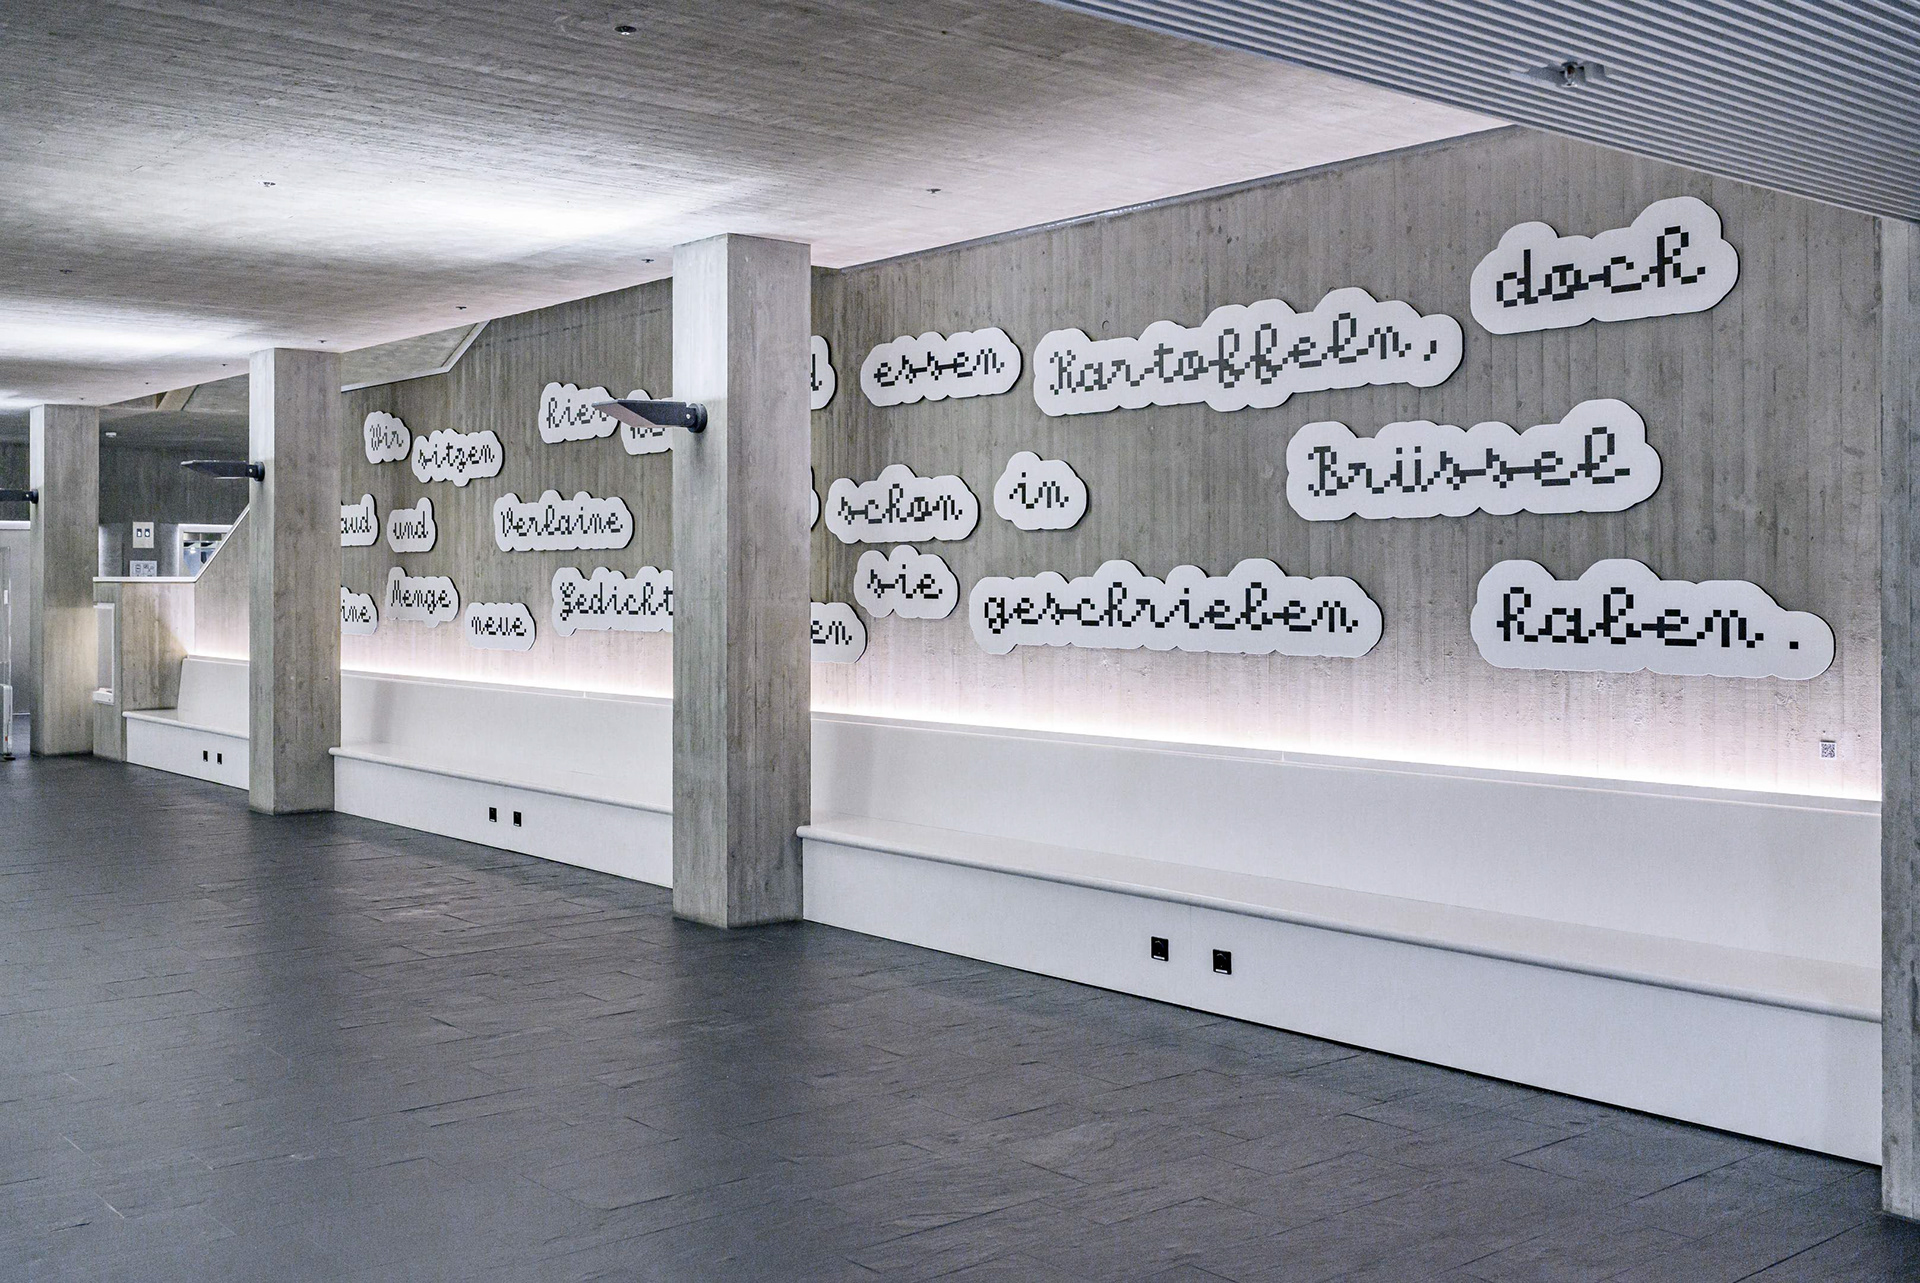 Wir sitzen hier d essen Kartoffeln, doch
aud und Verlaine schon in Brüssel
ine Menge neue Gedicht en sie geschrieben haben.